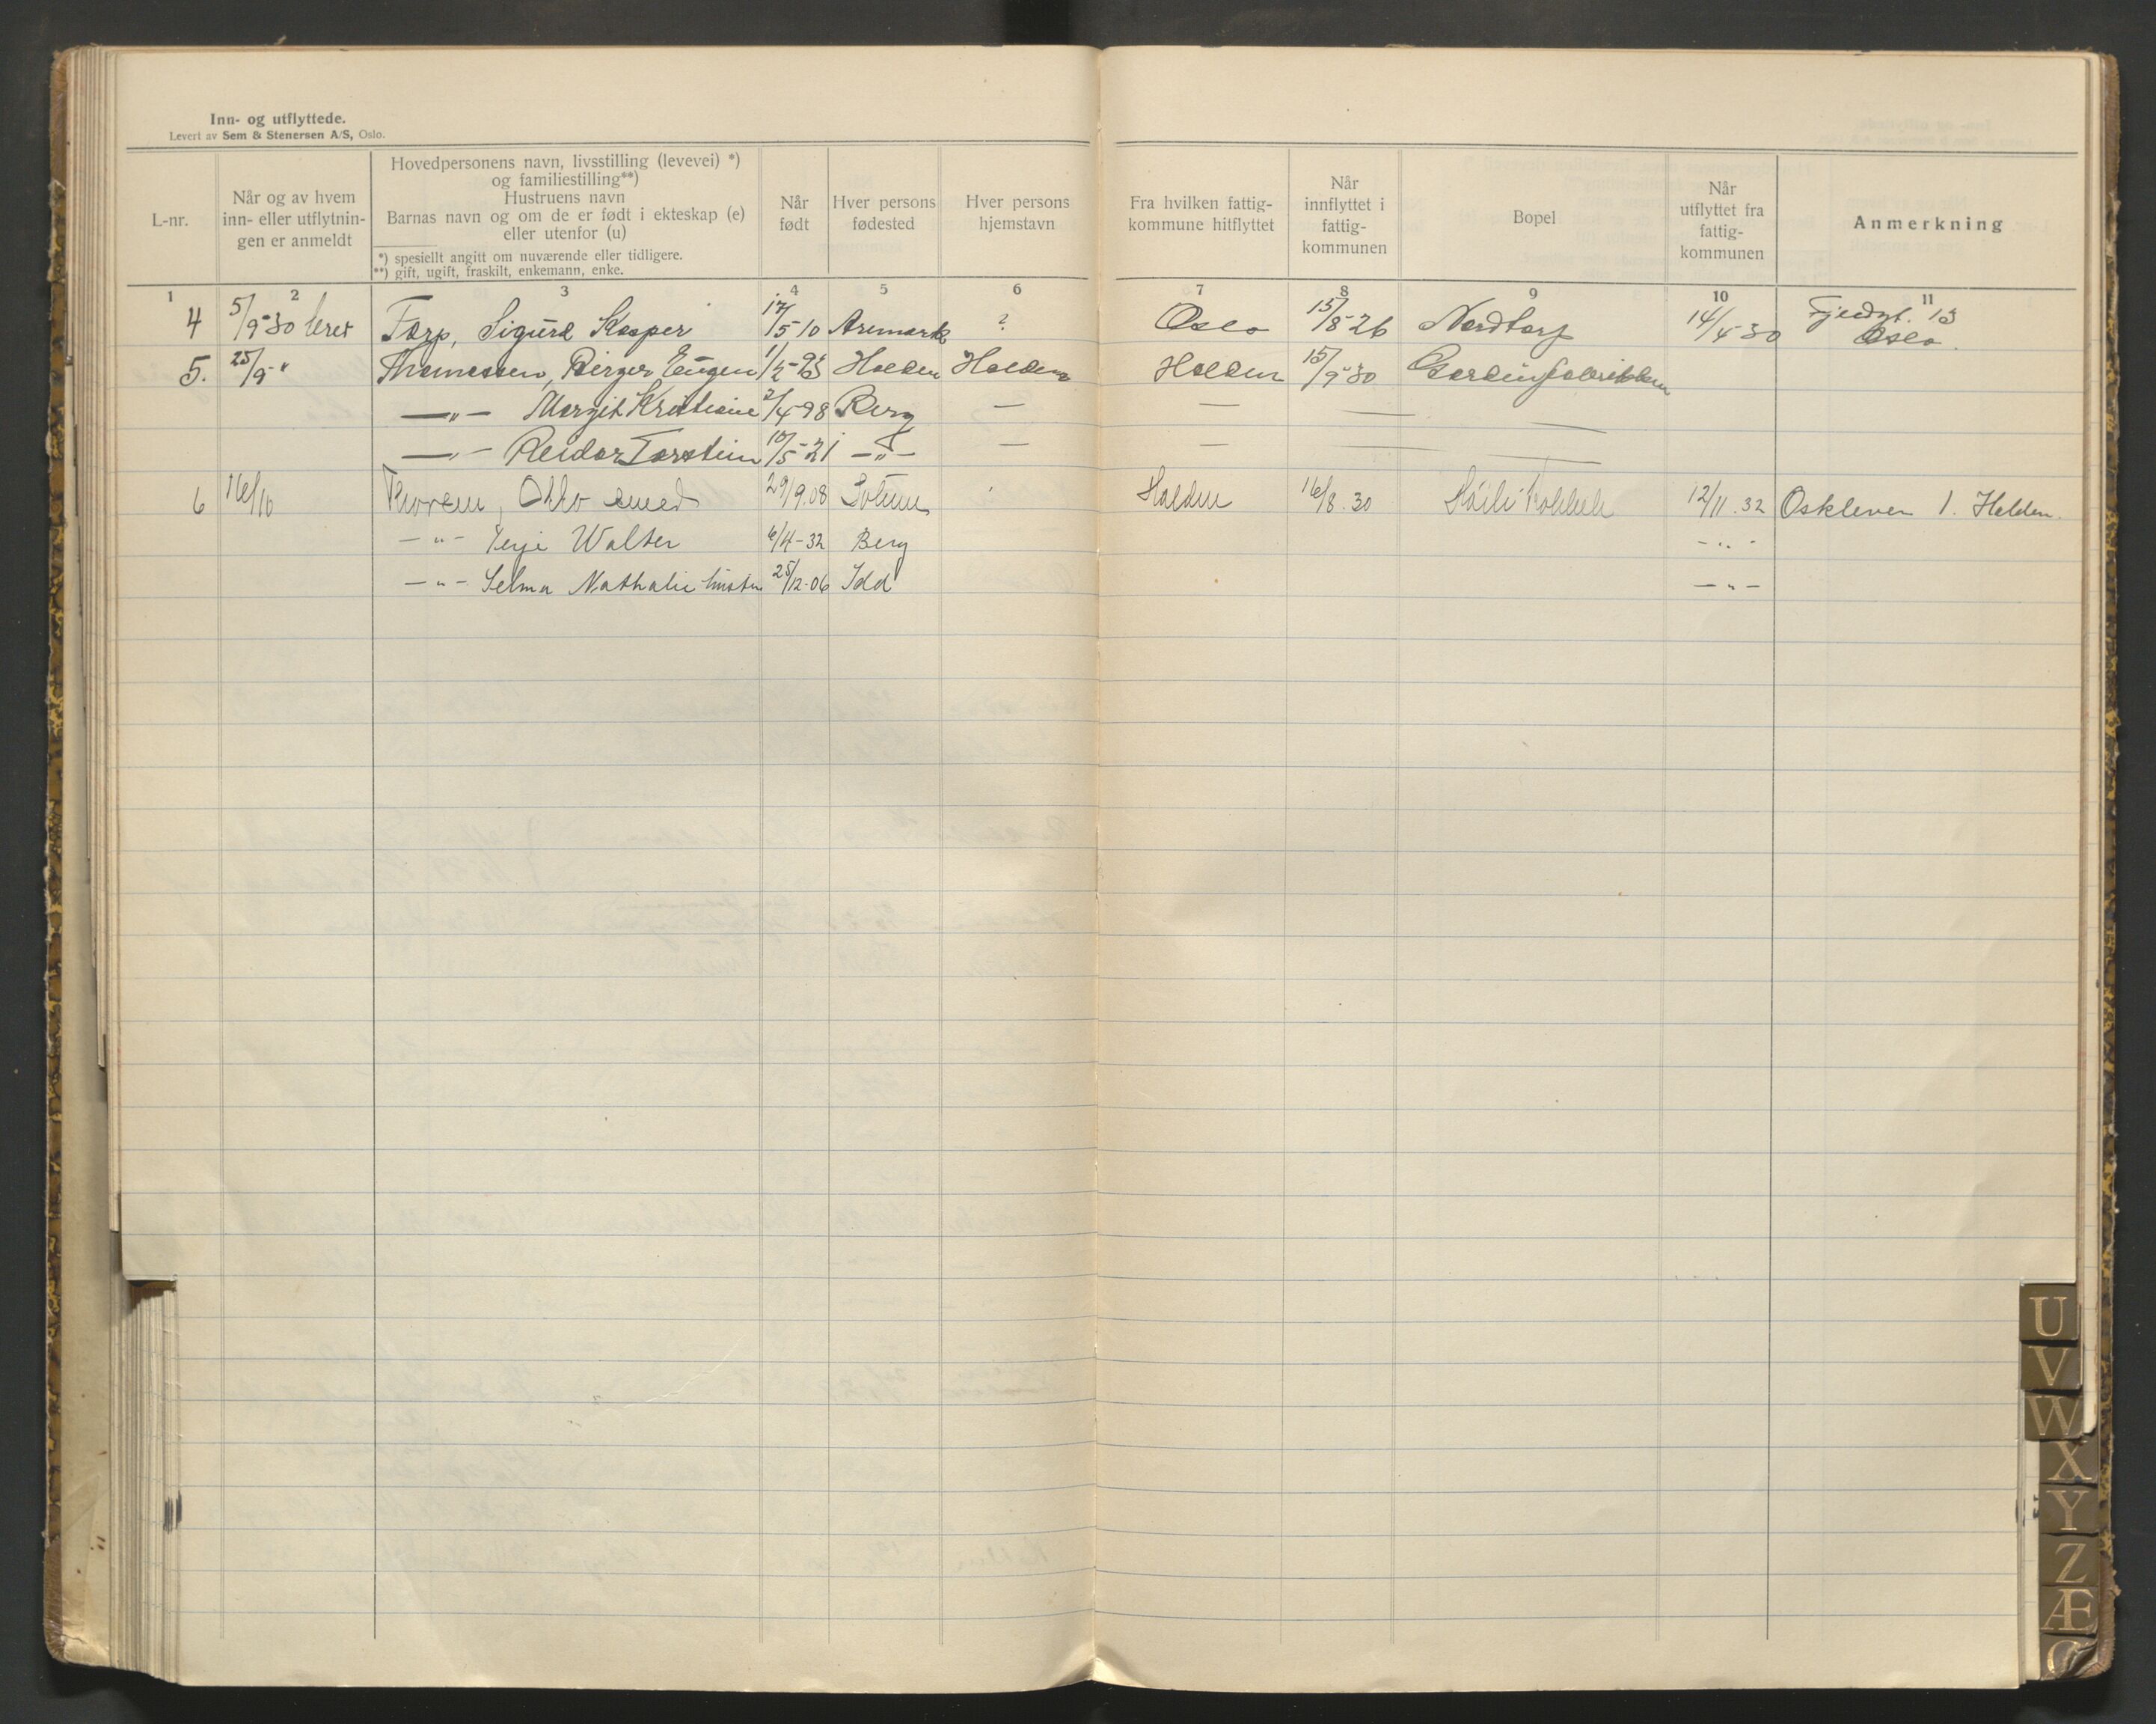 Inn- og utflyttede.
Levert av Sem & Stenersen A/S, Oslo.
L-nr.
Når og av hvem
inn- eller utflytnin-
gen er anmeldt
Hovedpersonens navn, livsstilling (levevei) *)
og familiestilling**)
Hustruens navn
Barnas navn og om de er født i ekteskap (e)
eller utenfor (u)
*) spesiellt angitt om nuværende eller tidligere.
**) gift, ugift, fraskilt, enkemann, enke.
Når
født
Hver persons
fødested
Hver persons
hjemstavn
Fra hvilken fattig-
kommune hitflyttet
Når
innflyttet i
fattig-
kommunen
Bopel
Når
utflyttet fra
fattig-
kommunen
Anmerkning
1 2 3 4 5 6 7 8 9 10 11
4 5/9-30 Torp, Sigurd Kasper 17/5-10 Aremark ? Oslo 15/8-26 Nordtorp 14/4-30 13
Oslo.
5. 25/9 " Thomessen, Birger Eugen Halden Halden Halden 15/9-30 Gardinfabrikken
—„— Margit Kristiane 2/4-98 Berg — — — —
—„— Reidar Torstein 10/5-21 —„— — — — —
6 16/10 Otto 29/9.08 Halden 16/8.30 12/11.32 Oskleven 1. Halden.
—"— Terje Walter 6/4-32 Berg —"—
—"— Selma Nathalie hustru 25/12-06 Idd —"—
U
V
W
X
Y
Z
Æ